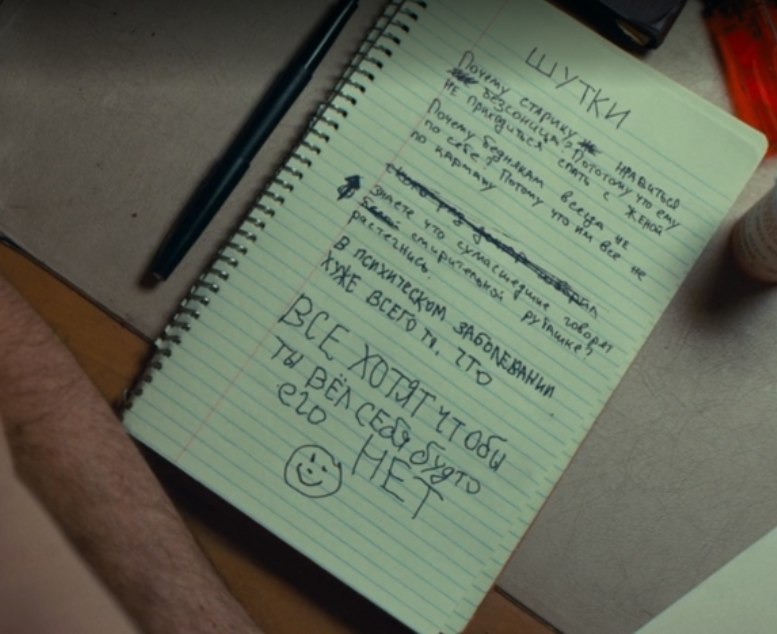 ШУТКИ
Почему старику нравиться
безсоница? Пототому что ему
не пригодиться спать с женой
Почему беднякам всегда не
по себе? Потому что им все не
по карману
знаете что сумасшедшие говорят
смирительной рубашке?
расстегнись.
В ПСИХИЧЕСКОМ ЗАБОЛЕВАНИИ
ХУЖЕ ВСЕГО ТО, ЧТО
ВСЕ ХОТЯТ ЧТОБЫ
ТЫ ВЁЛ СЕБЯ будто
его НЕТ